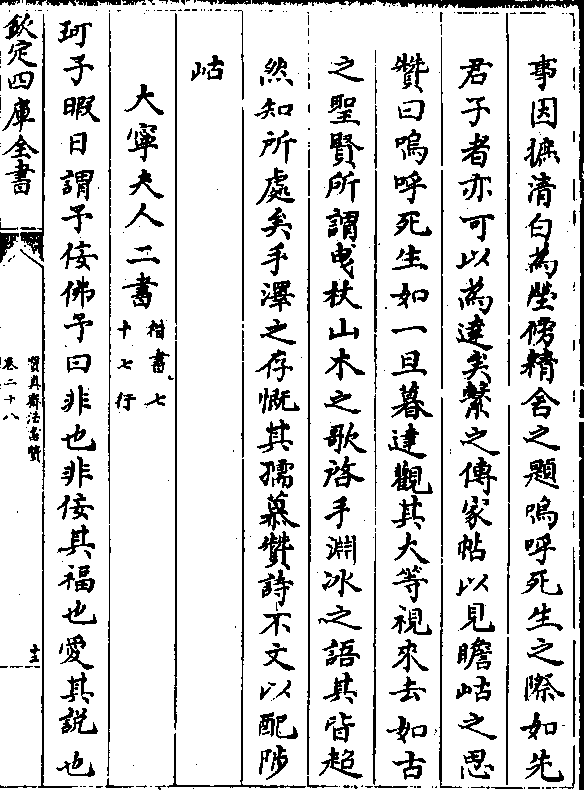 事因摭清白為塋傍精舍之題嗚呼死生之際如先
君子者亦可以為達矣繫之傳家帖以見瞻岵之思
贊曰嗚呼死生如一旦暮達觀其大等視來去如古
之聖賢所謂曳杖山木之歌啓手淵冰之語其皆超
然知所處矣手澤之存慨其孺慕贊詩不文以配陟
岵
大寧夫人二書
楷書七
十七行
珂子暇日謂予佞佛予曰非也非佞其福也愛其説也
欽定四庫全書
寶真齋法書贊
卷二十八
十三